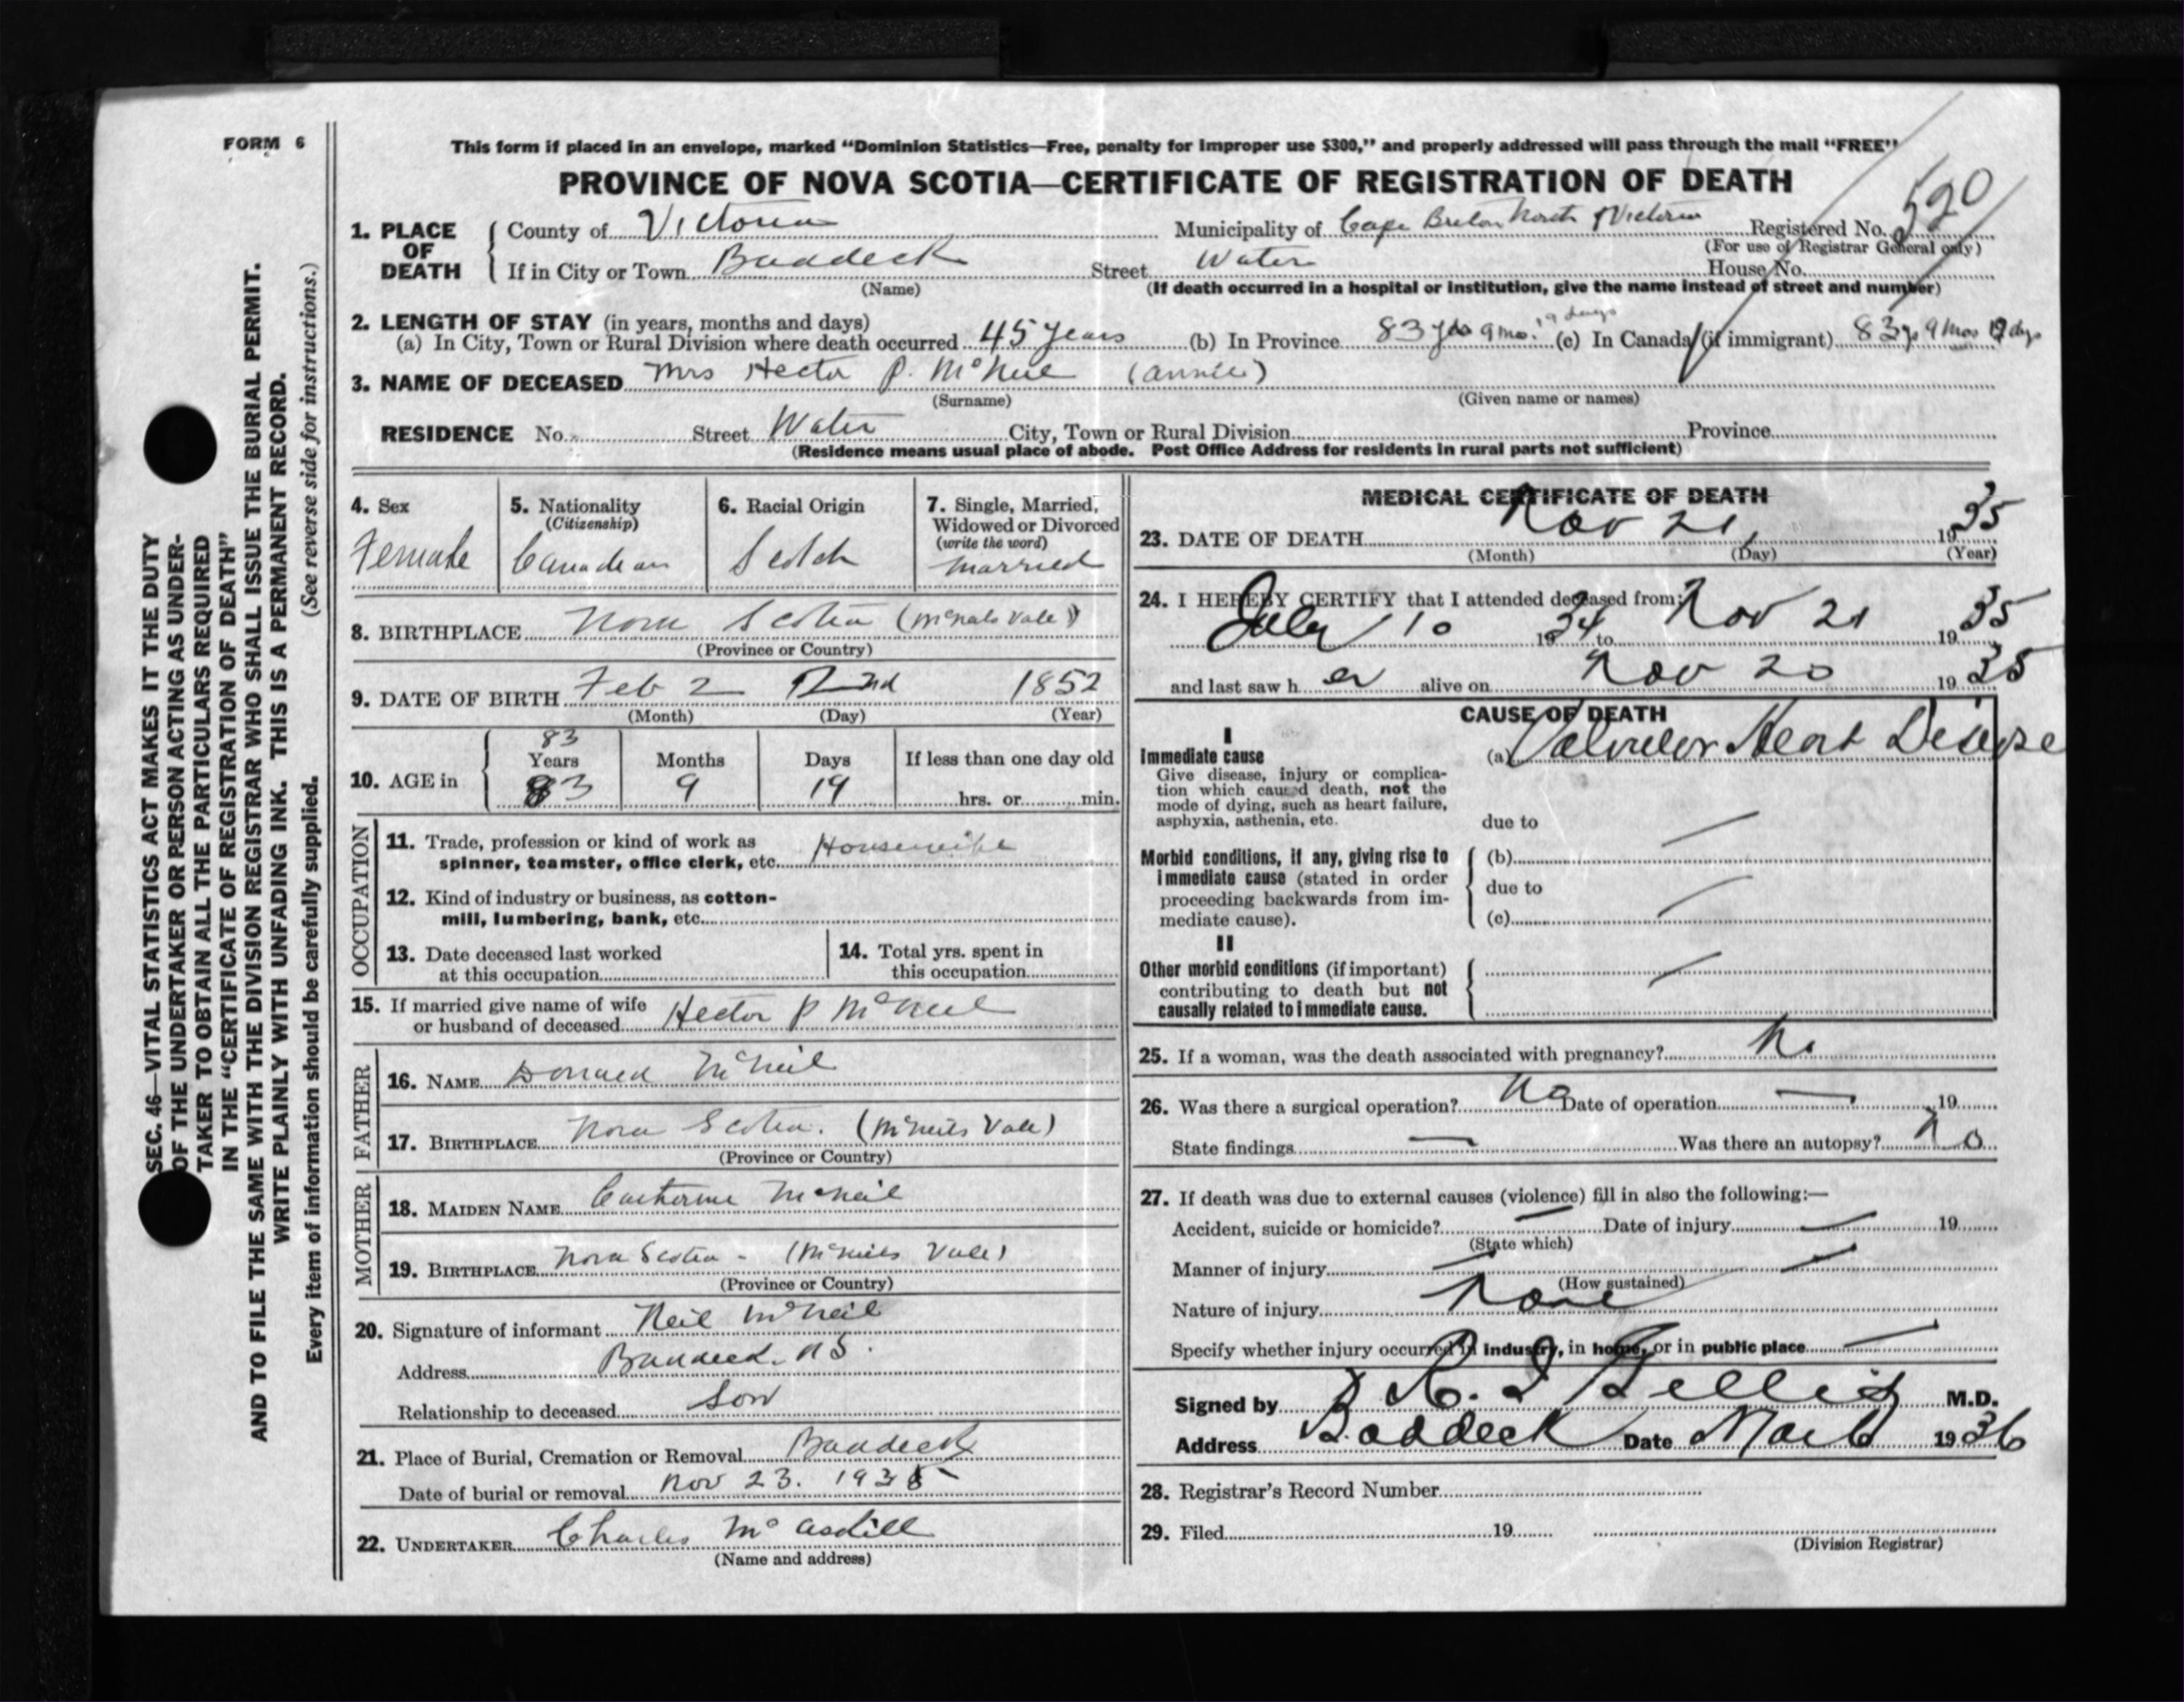 FORM 6
This form if placed in an envelope, marked “Dominion Statistics—Free, penalty for improper use $300,” and properly addressed will pass through the mail “FREE”
PROVINCE OF NOVA SCOTIA—CERTIFICATE OF REGISTRATION OF DEATH
1. PLACE OF DEATH
County of Victoria Municipality of Cape Breton North & Victoria Registered No. 520
(For use of Registrar General only)
If in City or Town Baddeck Street Water House No.
(Name) (If death occurred in a hospital or institution, give the name instead of street and number)
2. LENGTH OF STAY (in years, months and days)
(a) In City, Town or Rural Division where death occurred 45 years (b) In Province 83 yrs 9 mo. 19 days (c) In Canada (if immigrant) 83 yrs 9 mos 19 dys
3. NAME OF DECEASED Mrs Hector P. McNeil (Annie)
(Surname) (Given name or names)
RESIDENCE No. Street Water City, Town or Rural Division Province
(Residence means usual place of abode. Post Office Address for residents in rural parts not sufficient)
4. Sex
Female
5. Nationality
(Citizenship)
Canadian
6. Racial Origin
Scotch
7. Single, Married,
Widowed or Divorced
(write the word)
Married
8. BIRTHPLACE Nova Scotia (McNeils Vale)
(Province or Country)
9. DATE OF BIRTH Feb 2 2nd 1852
(Month) (Day) (Year)
10. AGE in
83
Years Months Days If less than one day old
83 9 19 hrs. or min.
OCCUPATION
11. Trade, profession or kind of work as
spinner, teamster, office clerk, etc. Housewife
12. Kind of industry or business, as cotton-
mill, lumbering, bank, etc.
13. Date deceased last worked
at this occupation
14. Total yrs. spent in
this occupation
15. If married give name of wife
or husband of deceased Hector P McNeil
FATHER
16. NAME Donald McNeil
17. BIRTHPLACE Nova Scotia. (McNeils Vale)
(Province or Country)
MOTHER
18. MAIDEN NAME Catherine McNeil
19. BIRTHPLACE Nova Scotia - (McNeils Vale)
(Province or Country)
20. Signature of informant Neil McNeil
Address Baddeck. N S.
Relationship to deceased Son
21. Place of Burial, Cremation or Removal Baddeck
Date of burial or removal Nov 23. 1935
22. UNDERTAKER Charles McAskill
(Name and address)
MEDICAL CERTIFICATE OF DEATH
23. DATE OF DEATH Nov 21, 1935
(Month) (Day) (Year)
24. I HEREBY CERTIFY that I attended deceased from:
July 10 1934 to Nov 21 1935
and last saw her alive on Nov 20 1935
CAUSE OF DEATH
I
Immediate cause
Give disease, injury or complica-
tion which caused death, not the
mode of dying, such as heart failure,
asphyxia, asthenia, etc.
(a) Valvular Heart Disease
due to
Morbid conditions, if any, giving rise to
immediate cause (stated in order
proceeding backwards from im-
mediate cause).
(b)
due to
(c)
II
Other morbid conditions (if important)
contributing to death but not
causally related to immediate cause.
25. If a woman, was the death associated with pregnancy? No
26. Was there a surgical operation? No Date of operation — 19
State findings — Was there an autopsy? No
27. If death was due to external causes (violence) fill in also the following:—
Accident, suicide or homicide? — Date of injury — 19
(State which)
Manner of injury —
(How sustained)
Nature of injury None
Specify whether injury occurred in industry, in home, or in public place —
Signed by C. L. Gillis M.D.
Address Baddeck Date 1936
28. Registrar's Record Number
29. Filed 19
(Division Registrar)
SEC. 46—VITAL STATISTICS ACT MAKES IT THE DUTY
OF THE UNDERTAKER OR PERSON ACTING AS UNDER-
TAKER TO OBTAIN ALL THE PARTICULARS REQUIRED
IN THE “CERTIFICATE OF REGISTRATION OF DEATH”
AND TO FILE THE SAME WITH THE DIVISION REGISTRAR WHO SHALL ISSUE THE BURIAL PERMIT.
WRITE PLAINLY WITH UNFADING INK. THIS IS A PERMANENT RECORD.
Every item of information should be carefully supplied. (See reverse side for instructions.)